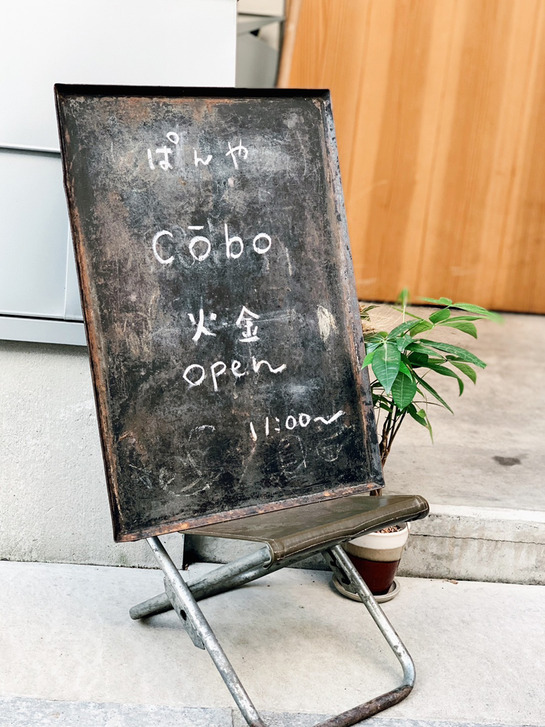 ぱんや
cōbo
火金
open
11:00〜